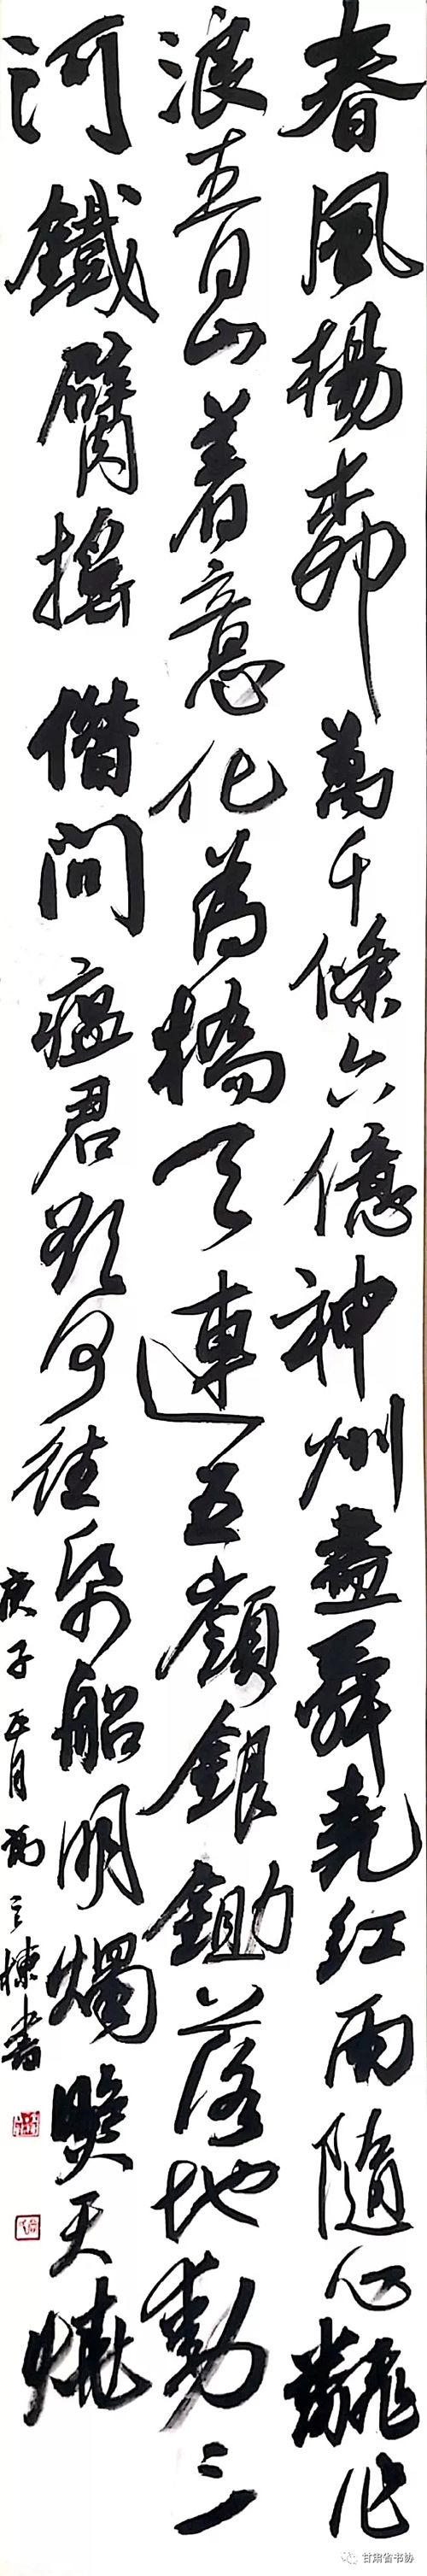 春風楊柳萬千條六億神州盡舜堯紅雨隨心飜作
浪青山着意化為橋天連五嶺銀鋤落地動三
河鐵臂搖借問瘟君欲何往紙船明燭照天燒
庚子正月之棟書
甘肃省书协